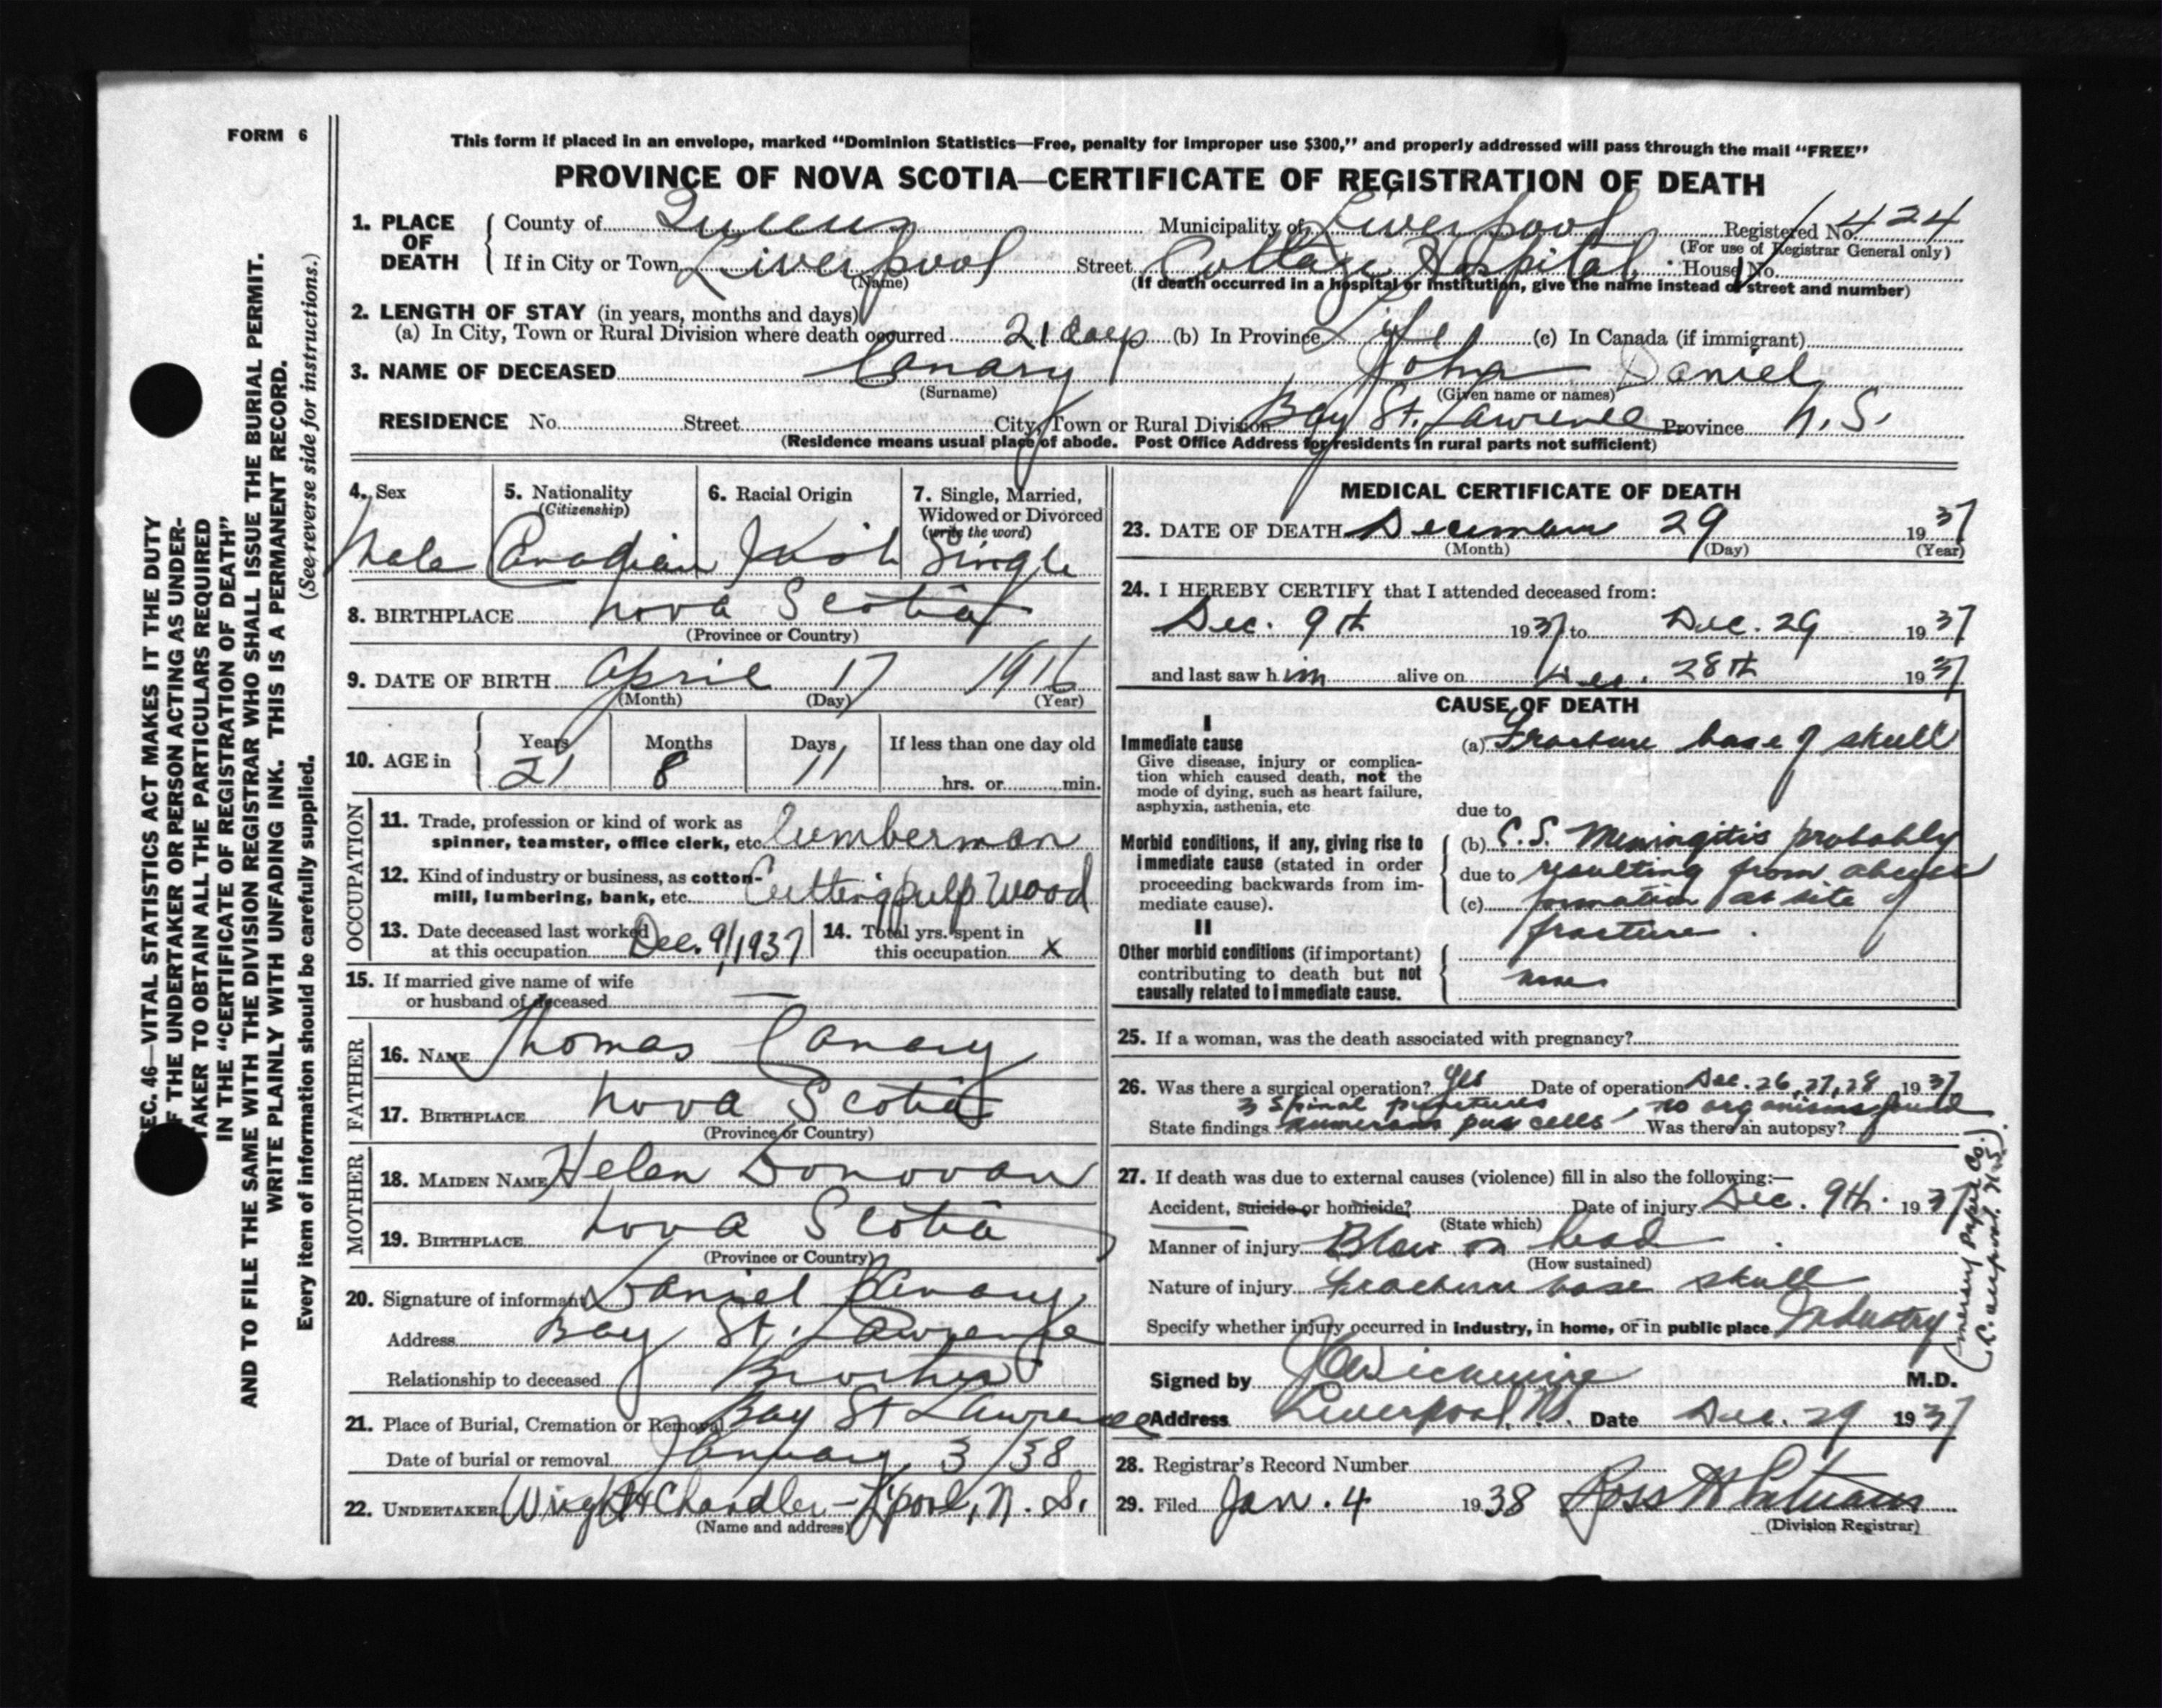 FORM 6
This form if placed in an envelope, marked “Dominion Statistics—Free, penalty for improper use $300,” and properly addressed will pass through the mail “FREE”
PROVINCE OF NOVA SCOTIA—CERTIFICATE OF REGISTRATION OF DEATH
1. PLACE OF DEATH County of Queens Municipality of Liverpool Registered No. 424
(For use of Registrar General only)
If in City or Town Liverpool Street Cottage Hospital House No.
(Name) (If death occurred in a hospital or institution, give the name instead of street and number)
2. LENGTH OF STAY (in years, months and days)
(a) In City, Town or Rural Division where death occurred 21 days (b) In Province Life (c) In Canada (if immigrant)
3. NAME OF DECEASED Canary John Daniel
(Surname) (Given name or names)
RESIDENCE No. Street City, Town or Rural Division Bay St. Lawrence Province N.S.
(Residence means usual place of abode. Post Office Address for residents in rural parts not sufficient)
4. Sex Male
5. Nationality (Citizenship) Canadian
6. Racial Origin Irish
7. Single, Married, Widowed or Divorced (write the word) Single
8. BIRTHPLACE Nova Scotia
(Province or Country)
9. DATE OF BIRTH April 17 1916
(Month) (Day) (Year)
10. AGE in Years 21 Months 8 Days 11 If less than one day old hrs. or min.
OCCUPATION
11. Trade, profession or kind of work as
spinner, teamster, office clerk, etc. Lumberman
12. Kind of industry or business, as cotton-
mill, lumbering, bank, etc. Cutting pulp Wood
13. Date deceased last worked
at this occupation Dec. 9/1937
14. Total yrs. spent in
this occupation x
15. If married give name of wife
or husband of deceased —
FATHER
16. NAME Thomas Canary
17. BIRTHPLACE Nova Scotia
(Province or Country)
MOTHER
18. MAIDEN NAME Helen Donovan
19. BIRTHPLACE Nova Scotia
(Province or Country)
20. Signature of informant Daniel Canary
Address Bay St. Lawrence
Relationship to deceased Brother
21. Place of Burial, Cremation or Removal Bay St Lawrence
Date of burial or removal January 3/38
22. UNDERTAKER Wright & Chandler — L'pool, N.S.
(Name and address)
MEDICAL CERTIFICATE OF DEATH
23. DATE OF DEATH December 29 1937
(Month) (Day) (Year)
24. I HEREBY CERTIFY that I attended deceased from:
Dec. 9th 1937 to Dec. 29 1937
and last saw him alive on Dec. 28th 1937
CAUSE OF DEATH
I
Immediate cause (a) Fracture base of skull
Give disease, injury or complica-
tion which caused death, not the
mode of dying, such as heart failure,
asphyxia, asthenia, etc
due to
Morbid conditions, if any, giving rise to
immediate cause (stated in order
proceeding backwards from im-
mediate cause).
(b) C.S. Meningitis probably
due to resulting from abscess
(c) formation at site of
fracture.
II
Other morbid conditions (if important)
contributing to death but not
causally related to immediate cause.
none
25. If a woman, was the death associated with pregnancy?
26. Was there a surgical operation? Yes Date of operation Dec. 26, 27, 28 1937
3 spinal punctures, no organisms found
State findings numerous pus cells Was there an autopsy?
27. If death was due to external causes (violence) fill in also the following:—
Accident, suicide or homicide? Date of injury Dec. 9th 1937
(State which)
Manner of injury Blow on head
(How sustained)
Nature of injury Fracture base skull
Specify whether injury occurred in industry, in home, or in public place Industry
Signed by M.D.
Address Liverpool, N.S. Date Dec. 29 1937
28. Registrar's Record Number
29. Filed Jan. 4 1938 Ross H
(Division Registrar)
(Mersey Paper Co.
L'verpool. N.S.)
SEC. 46—VITAL STATISTICS ACT MAKES IT THE DUTY
OF THE UNDERTAKER OR PERSON ACTING AS UNDER-
TAKER TO OBTAIN ALL THE PARTICULARS REQUIRED
IN THE “CERTIFICATE OF REGISTRATION OF DEATH”
AND TO FILE THE SAME WITH THE DIVISION REGISTRAR WHO SHALL ISSUE THE BURIAL PERMIT.
WRITE PLAINLY WITH UNFADING INK. THIS IS A PERMANENT RECORD.
Every item of information should be carefully supplied. (See reverse side for instructions.)